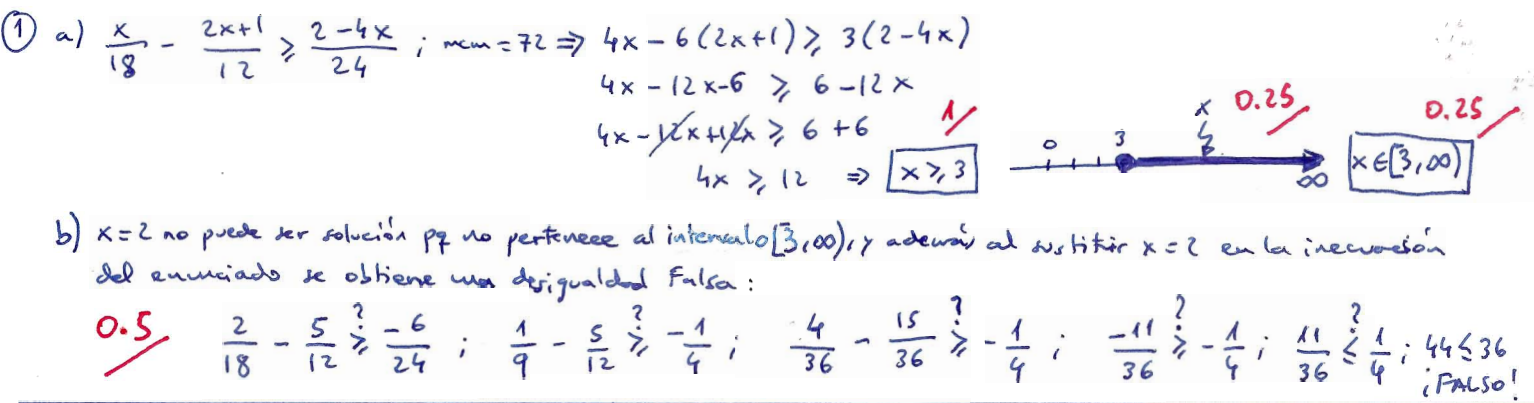 ① a) x/18 - 2x+1/12 ⩾ 2-4x/24 ; mcm = 72 ⇒ 4x - 6(2x+1) ⩾ 3(2-4x)
4x - 12x - 6 ⩾ 6 - 12x
4x - 12x + 12x ⩾ 6 + 6
4x ⩾ 12 ⇒ x ⩾ 3 1
0 3 x ∞ 0.25
x ∈ [3,∞) 0.25
b) x=2 no puede ser solución pq no pertenece al intervalo [3,∞), y además al sustituir x=2 en la inecuación
del enunciado se obtiene una desigualdad Falsa:
0.5 2/18 - 5/12 ⩾? -6/24 ; 1/9 - 5/12 ⩾? -1/4 ; 4/36 - 15/36 ⩾? -1/4 ; -11/36 ⩾? -1/4 ; 11/36 ⩽? 1/4 ; 44 ⩽ 36
¡FALSO!